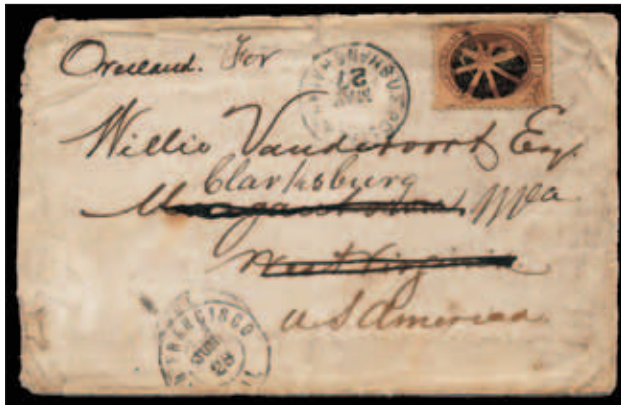 Overland. For
Willie Vandervoort Esq.
Clarksburg
Morgantown W Va
West Virginia
U S America
21
FRANCISCO
28